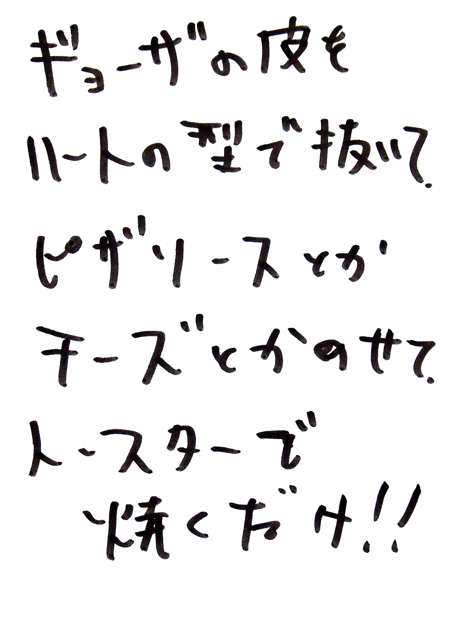 ギョーザの皮を
ハートの型で抜いて、
ピザソースとか
チーズとかのせて、
トースターで
焼くだけ!!